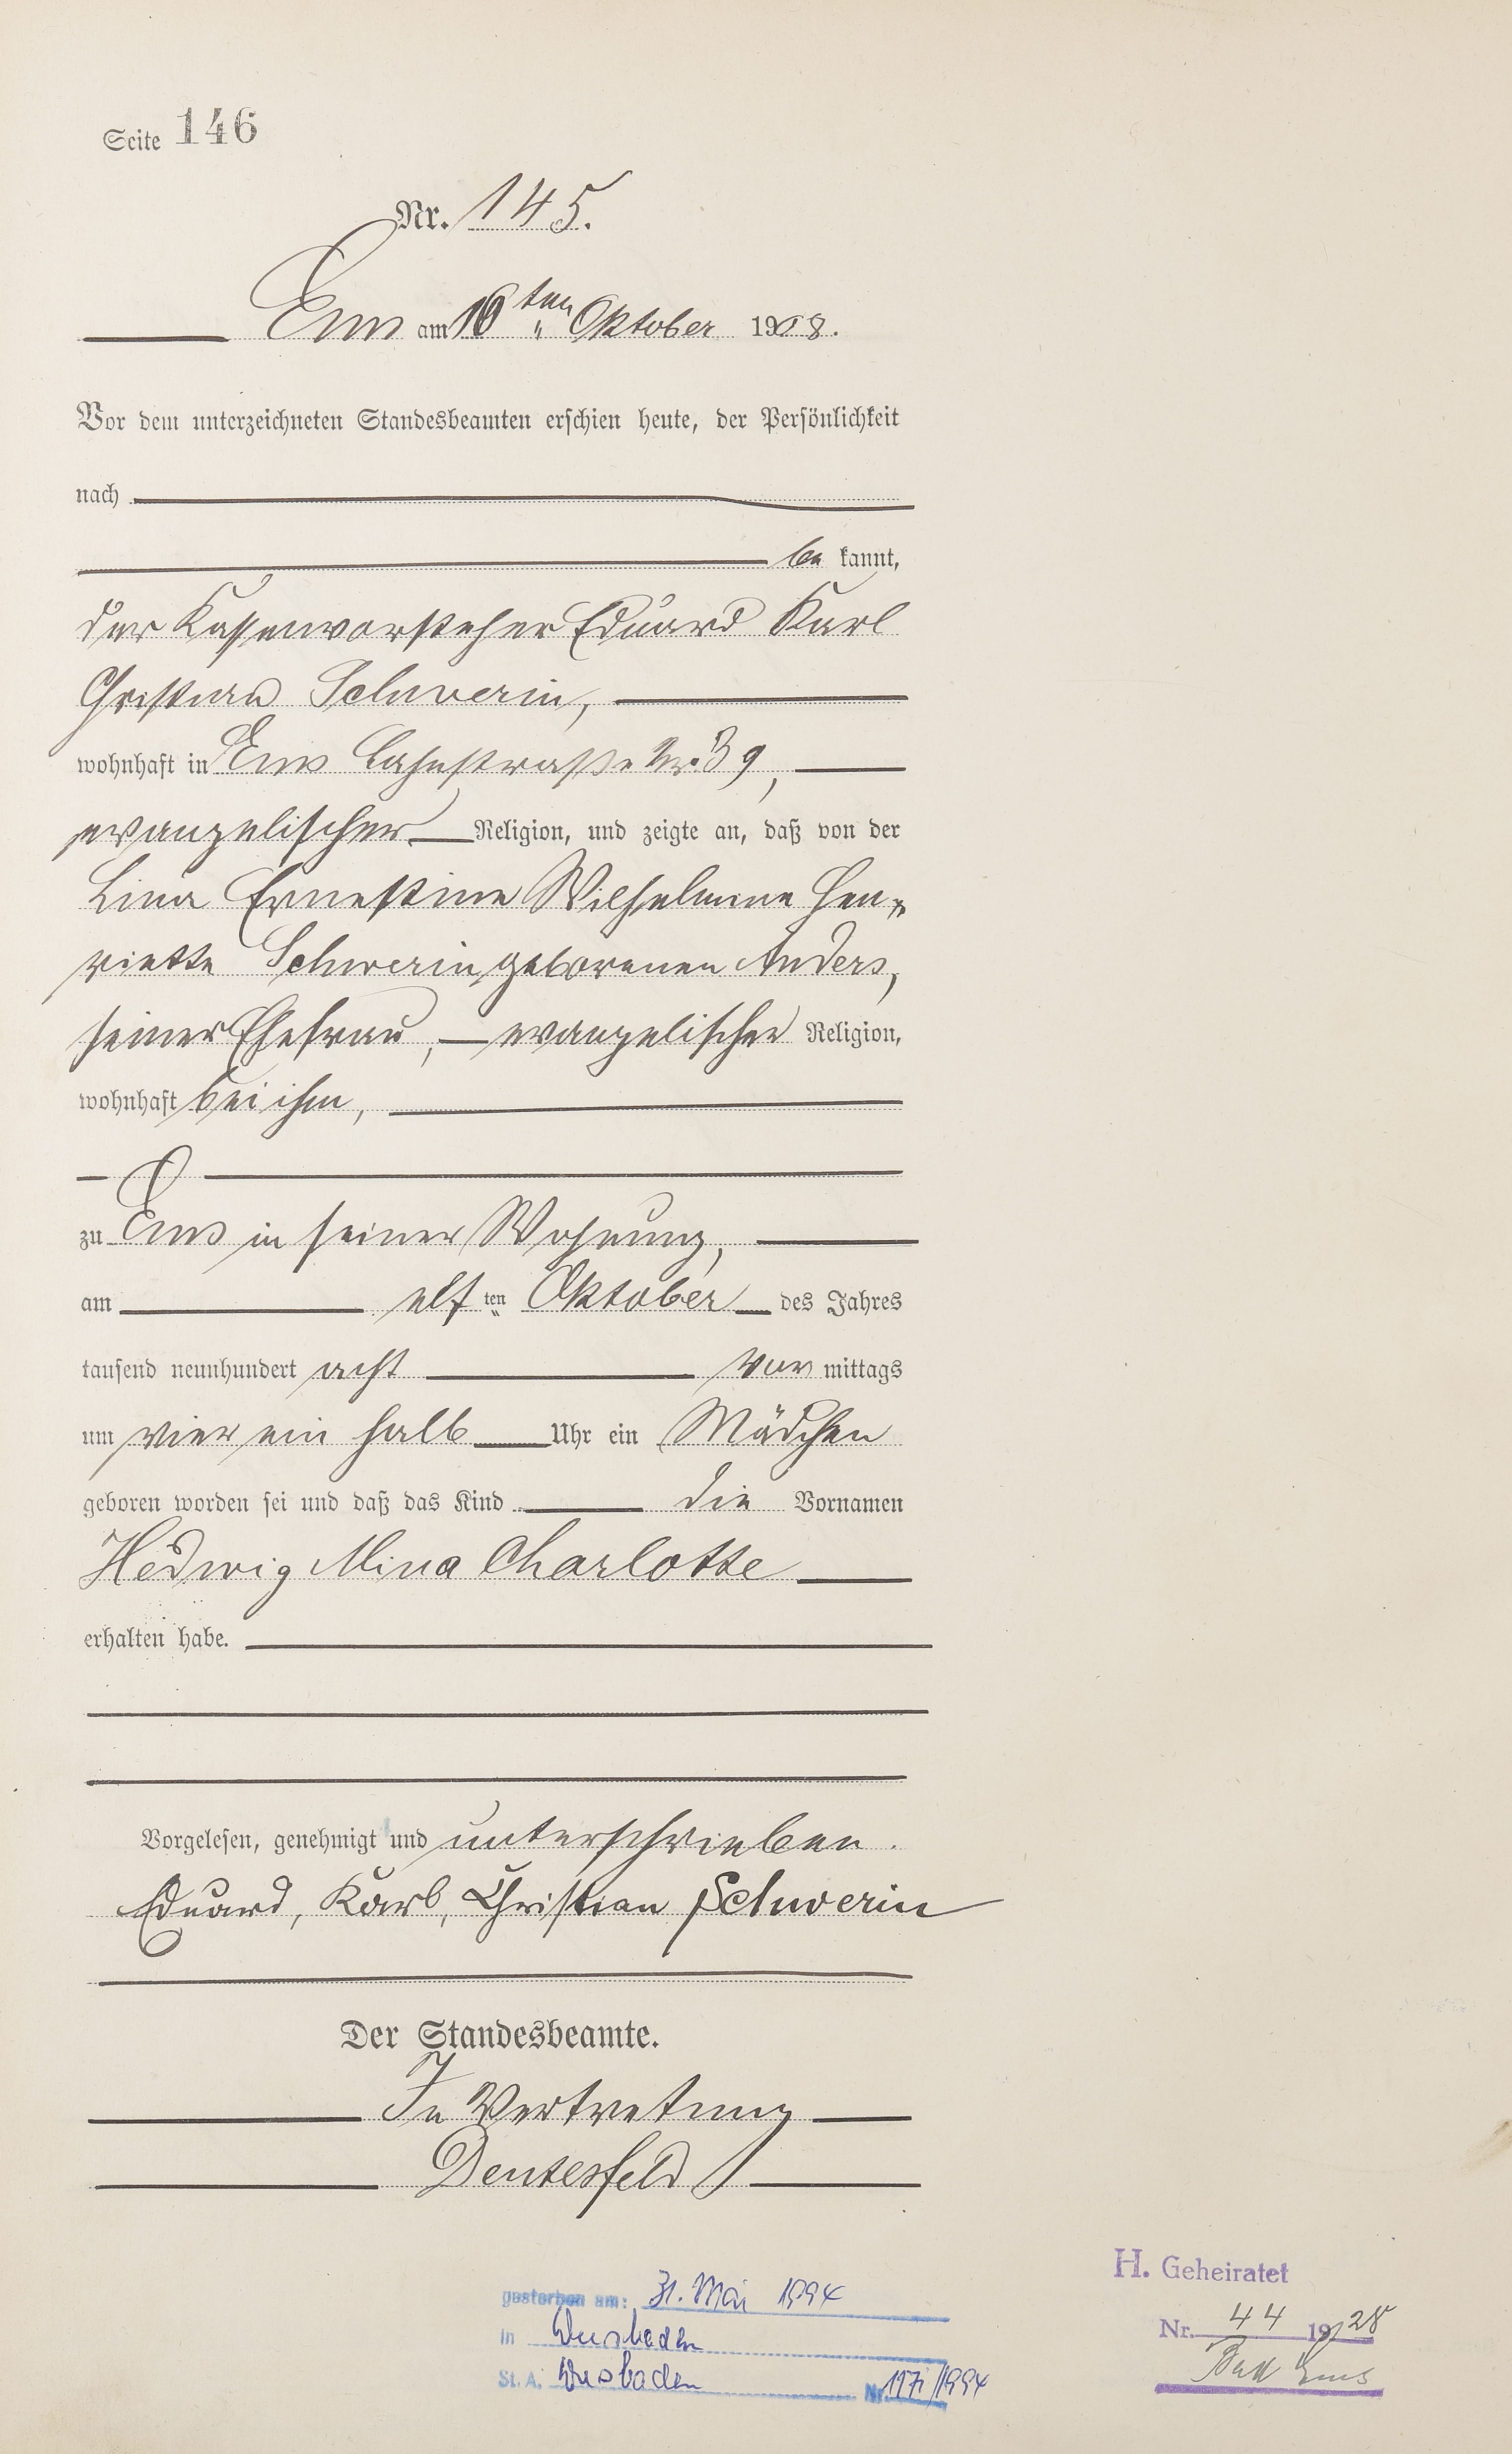 Seite 146
Nr. 145.
Ems am 16ten Oktober 1908.
Vor dem unterzeichneten Standesbeamten erschien heute, der Persönlichkeit
nach
be kannt,
der Kassenvorsteher Eduard Karl
Christian Schwerin,
wohnhaft in Ems Lahnstraße Nr. 39,
evangelischer Religion, und zeigte an, daß von der
Lina Ernestine Wilhelmine Hen=
riette Schwerin geborenen Anders,
seiner Ehefrau, evangelischer Religion,
wohnhaft bei ihm,
zu Ems in seiner Wohnung,
am elf ten Oktober des Jahres
tausend neunhundert acht Vor mittags
um vier ein halb Uhr ein Mädchen
geboren worden sei und daß das Kind die Vornamen
Hedwig Mina Charlotte
erhalten habe.
Vorgelesen, genehmigt und unterschrieben.
Eduard, Karl, Christian Schwerin
Der Standesbeamte.
In Vertretung
gestorben am: 31. Mai 1994
in Wiesbaden
St. A. Wiesbaden Nr. /1994
H. Geheiratet
Nr. 44 1928
Bad Ems